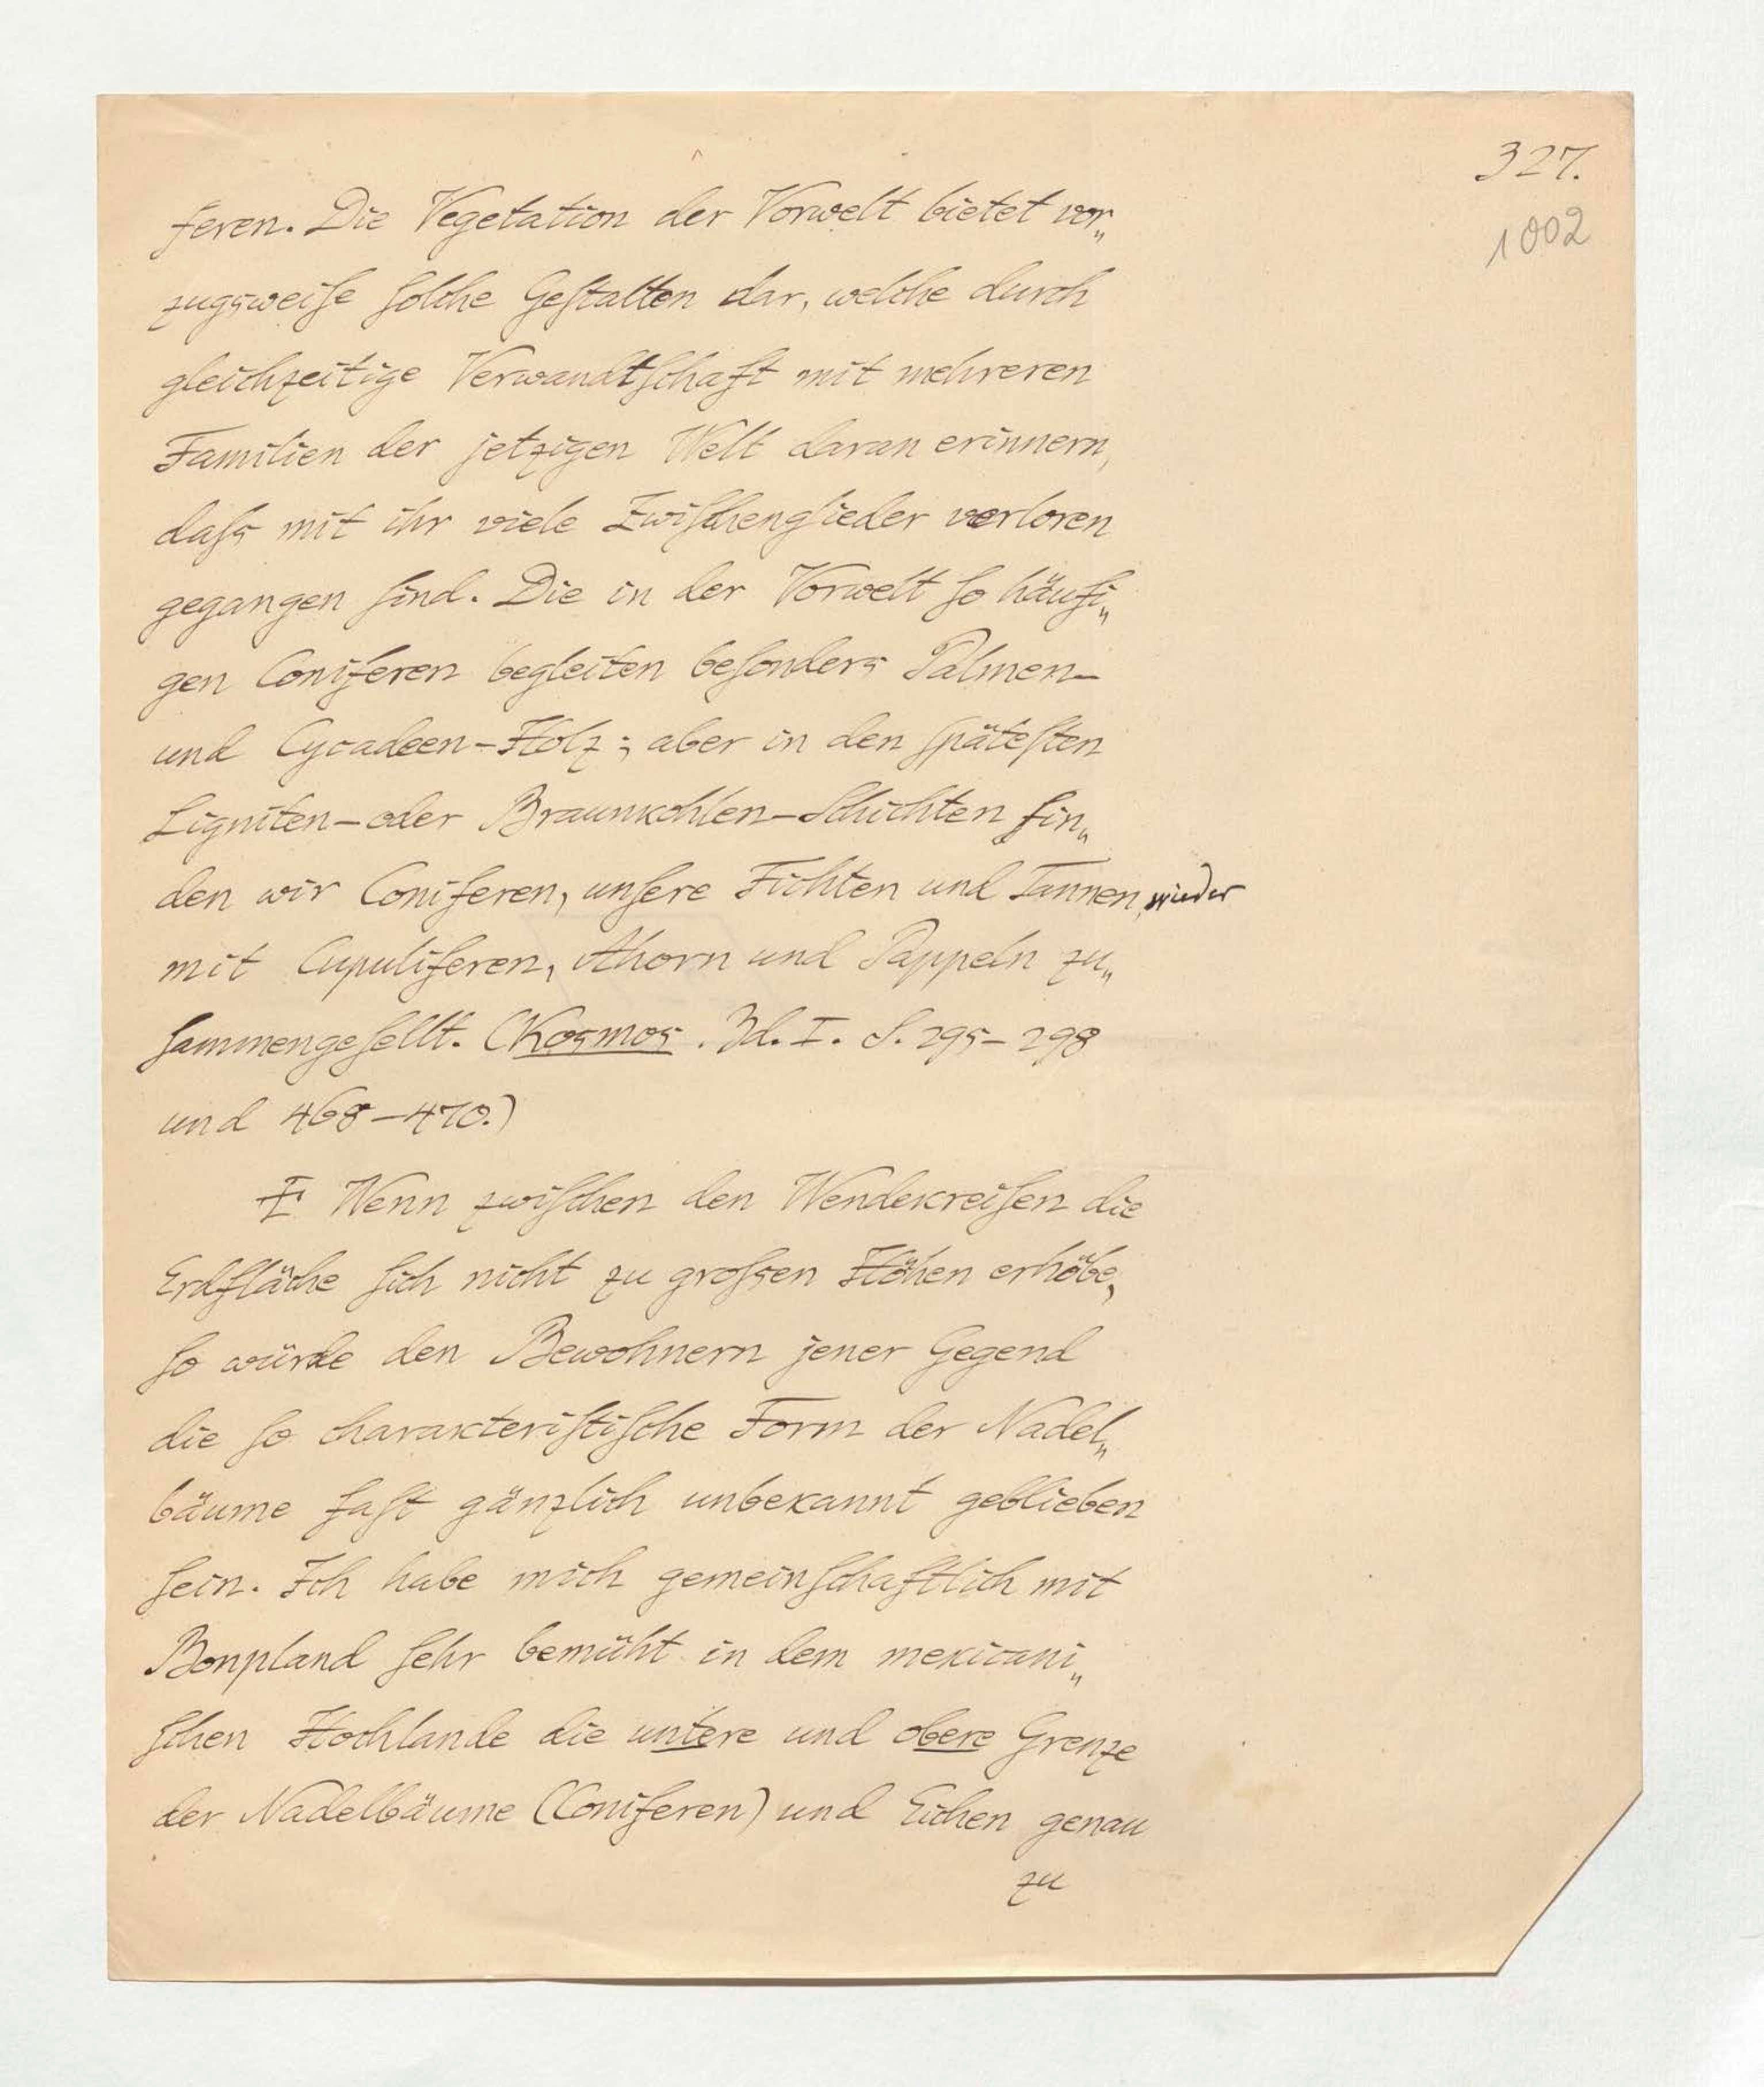 327.
1002
feren. Die Vegetation der Vorwelt bietet vor„
zugsweiſe ſolche Geſtalten dar, welche durch
gleichzeitige Verwandtſchaft mit mehreren
Familien der jetzigen Welt daran erinnern,
daſs mit ihr viele Zwiſchenglieder verloren
gegangen ſind. Die in der Vorwelt ſo häufi„
gen Coniferen begleiten beſonders Palmen-
und Cycadeen-Holz; aber in den ſpäteſten
Ligniten- oder Braunkohlen-Schichten fin„
den wir Coniferen, unſere Fichten und Tannen, wieder
mit Cupuliferen, Ahorn und Pappeln zu„
ſammengeſellt. (Kosmos. Bd. I. S. 295-298
und 468-470.)
Wenn zwiſchen den Wendekreiſen die
Erdfläche ſich nicht zu groſsen Höhen erhöbe,
ſo würde den Bewohnern jener Gegend
die ſo charakteriſtiſche Form der Nadel„
bäume faſt gänzlich unbekannt geblieben
ſein. Ich habe mich gemeinſchaftlich mit
Bonpland ſehr bemüht in dem mexicani„
ſchen Hochlande die untere und obere Grenze
der Nadelbäume (Coniferen) und Eichen genau
zu